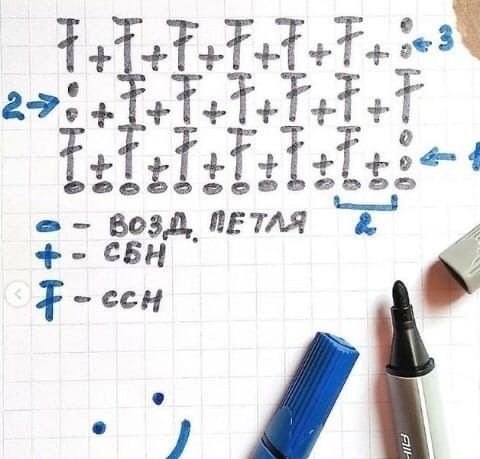 3
2
1
2
- ВОЗД. ПЕТЛЯ
+ - СБН
- ССН